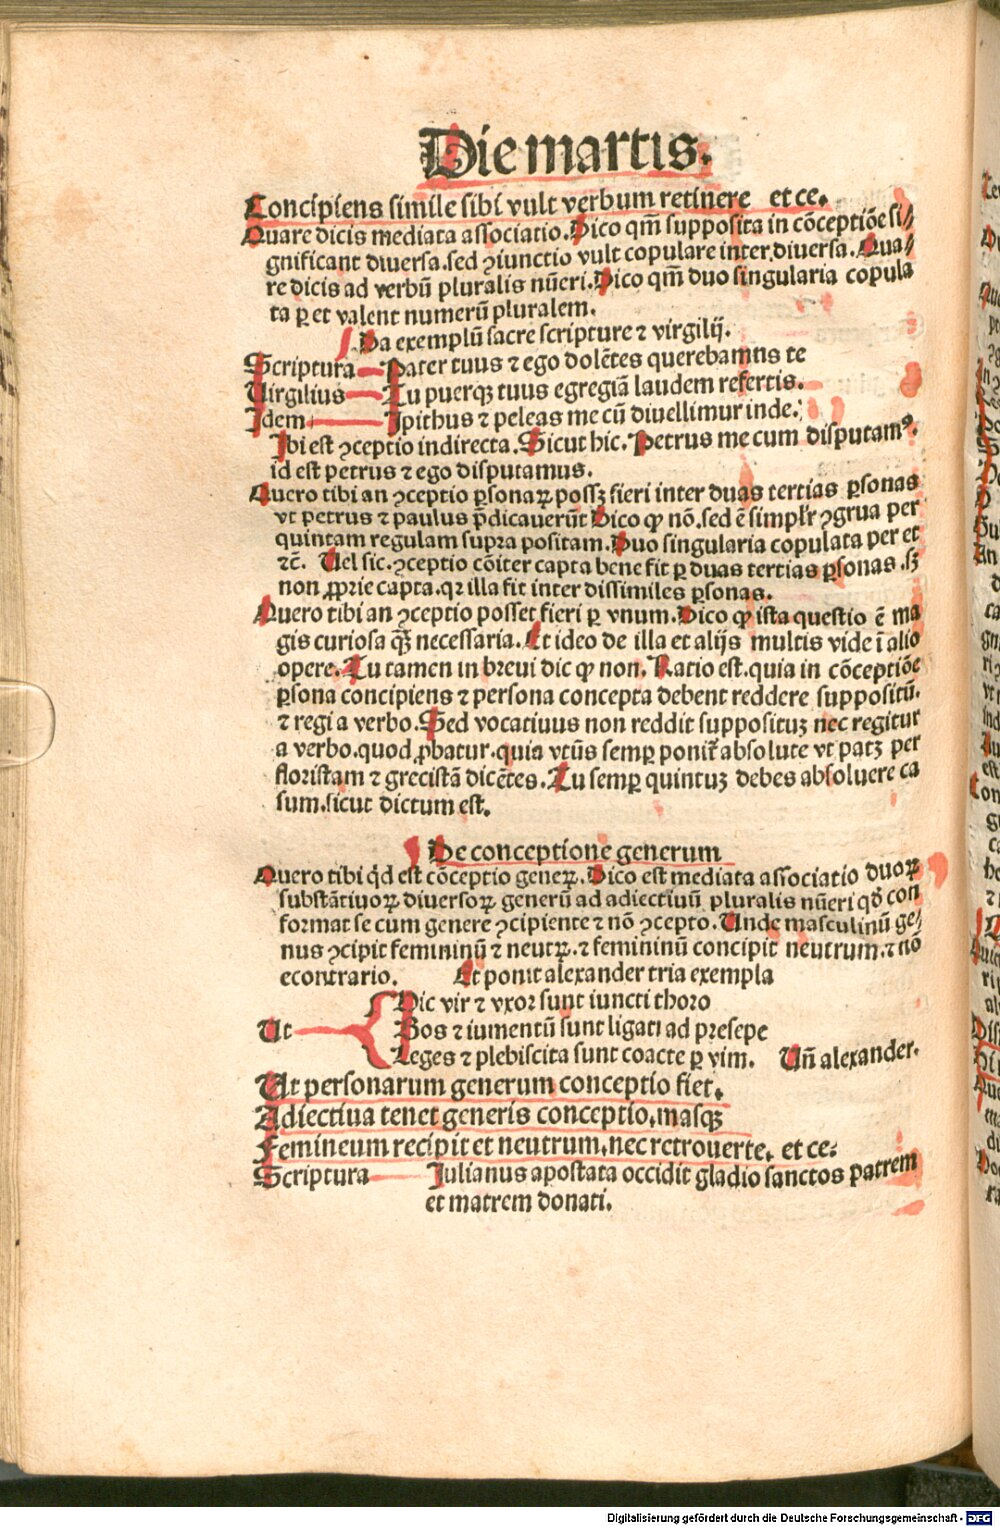 Die martis.
Concipiens simile sibi vult verbum retinere et ce.
Quare dicis mediata associatio. Dico qm̄ supposita in cōceptiōe si⸗
gnificant diuersa. sed ꝯiunctio vult copulare inter diuersa. Qua⸗
re dicis ad verbū pluralis nūeri. Dico qm̄ duo singularia copula
ta ꝑ et valent numerū pluralem.
Da exemplū sacre scripture ⁊ virgilij.
Scriptura Pater tuus ⁊ ego dolētes querebamus te
Uirgilius Tu puerqꝫ tuus egregiā laudem refertis.
Idem Ipithus ⁊ peleas me cū diuellimur inde.
Ibi est ꝯceptio indirecta. Sicut hic. Petrus me cum disputamꝰ.
id est petrus ⁊ ego disputamus.
Quero tibi an ꝯceptio ꝑsonaꝝ possꝫ fieri inter duas tertias ꝑsonas
vt petrus ⁊ paulus p̄dicauerūt Dico ꝙ nō. sed ē simpl'r ꝯgrua per
quintam regulam supra positam. Duo singularia copulata per et
⁊c̄. Uel sic. ꝯceptio cōiter capta bene fit ꝑ duas tertias ꝑsonas .sꝫ
non ꝓprie capta. qꝛ illa fit inter dissimiles ꝑsonas.
Quero tibi an ꝯceptio posset fieri ꝑ vnum. Dico ꝙ ista questio ē ma
gis curiosa qꝫ̄ necessaria. Et ideo de illa et alijs multis vide ī alio
opere. Tu tamen in breui dic ꝙ non. Ratio est. quia in cōceptiōe
ꝑsona concipiens ⁊ persona concepta debent reddere suppositū.
⁊ regi a verbo. Sed vocatiuus non reddit supposituꝫ nec regitur
a verbo. quod ꝓbatur. quia vtūs semꝑ ponit̄ absolute vt patꝫ per
floristam ⁊ grecistā dicētes. Tu semꝑ quintuꝫ debes absoluere ca
sum. sicut dictum est.
De conceptione generum
Quero tibi qd̄ est cōceptio geneꝝ. Dico est mediata associatio duoꝝ
substātiuoꝝ diuersoꝝ generū ad adiectiuū pluralis nūeri qd̄ con
format se cum genere ꝯcipiente ⁊ nō ꝯcepto. Unde masculinū ge⸗
nus ꝯcipit femininū ⁊ neutꝝ. ⁊ femininū concipit neutrum. ⁊ nō
econtrario. Et ponit alexander tria exempla
Dic vir ⁊ vxor sunt iuncti thoro
Ut Bos ⁊ iumentū sunt ligati ad presepe
Leges ⁊ plebiscita sunt coacte ꝑ vim. Uñ alexander.
Ut personarum generum conceptio fiet.
Adiectiua tenet generis conceptio, masqꝫ
Femineum recipit et neutrum, nec retrouerte. et ce.
Scriptura Iulianus apostata occidit gladio sanctos patrem
et matrem donati.
Digitalisierung gefördert durch die Deutsche Forschungsgemeinschaft - DFG